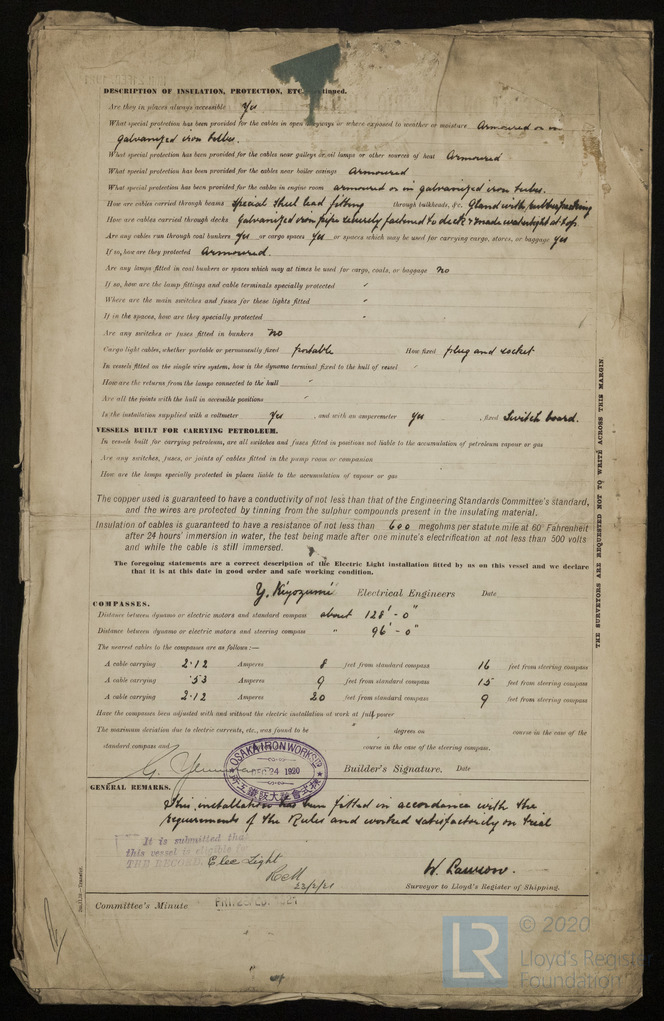 DESCRIPTION OF INSULATION, PROTECTION, ETC.
Are they in places always accessible Yes
What special protection has been provided for the cables in open alleyways or where exposed to weather or moisture Armoured or in
galvanized iron tubes.
What special protection has been provided for the cables near galleys or oil lamps or other sources of heat Armoured
What special protection has been provided for the cables near boiler casings Armoured
What special protection has been provided for the cables in engine room armoured or in galvanized iron tubes.
How are cables carried through beams special steel lead fitting through bulkheads, &c. Gland with rubber packing
How are cables carried through decks Galvanized iron pipe securely fastened to deck & made watertight at top.
Are any cables run through coal bunkers Yes or cargo spaces Yes or spaces which may be used for carrying cargo, stores, or baggage Yes
If so, how are they protected Armoured.
Are any lamps fitted in coal bunkers or spaces which may at times be used for cargo, coals, or baggage No
If so, how are the lamp fittings and cable terminals specially protected "
Where are the main switches and fuses for these lights fitted "
If in the spaces, how are they specially protected "
Are any switches or fuses fitted in bunkers No
Cargo light cables, whether portable or permanently fixed portable How fixed plug and socket
In vessels fitted on the single wire system, how is the dynamo terminal fixed to the hull of vessel "
How are the returns from the lamps connected to the hull "
Are all the joints with the hull in accessible positions "
Is the installation supplied with a voltmeter Yes , and with an amperemeter Yes , fixed Switch board.
VESSELS BUILT FOR CARRYING PETROLEUM.
In vessels built for carrying petroleum, are all switches and fuses fitted in positions not liable to the accumulation of petroleum vapour or gas
Are any switches, fuses, or joints of cables fitted in the pump room or companion
How are the lamps specially protected in places liable to the accumulation of vapour or gas
The copper used is guaranteed to have a conductivity of not less than that of the Engineering Standards Committee's standard,
and the wires are protected by tinning from the sulphur compounds present in the insulating material.
Insulation of cables is guaranteed to have a resistance of not less than 600 megohms per statute mile at 60° Fahrenheit
after 24 hours' immersion in water, the test being made after one minute's electrification at not less than 500 volts
and while the cable is still immersed.
The foregoing statements are a correct description of the Electric Light installation fitted by us on this vessel and we declare
that it is at this date in good order and safe working condition.
Y. Kiyozumi Electrical Engineers Date
COMPASSES.
Distance between dynamo or electric motors and standard compass about 128'-0"
Distance between dynamo or electric motors and steering compass " 96'-0"
The nearest cables to the compasses are as follows:—
A cable carrying 2·12 Amperes 8 feet from standard compass 16 feet from steering compass
A cable carrying ·53 Amperes 9 feet from standard compass 15 feet from steering compass
A cable carrying 2·12 Amperes 20 feet from standard compass 9 feet from steering compass
Have the compasses been adjusted with and without the electric installation at work at full power
The maximum deviation due to electric currents, etc., was found to be " degrees on course in the case of the
standard compass and course in the case of the steering compass.
OSAKA IRON WORKS LTD
DEC 24 1920
株式會社大阪鐵工所
Builder's Signature. Date
GENERAL REMARKS.
This installation has been fitted in accordance with the
requirements of the Rules and worked satisfactorily on trial
It is submitted that
this vessel is eligible for
THE RECORD. Elec Light
23/2/21
W. Lawson.
Surveyor to Lloyd's Register of Shipping.
Committee's Minute
THE SURVEYORS ARE REQUESTED NOT TO WRITE ACROSS THIS MARGIN
LR
© 2020
Lloyd's Register
Foundation